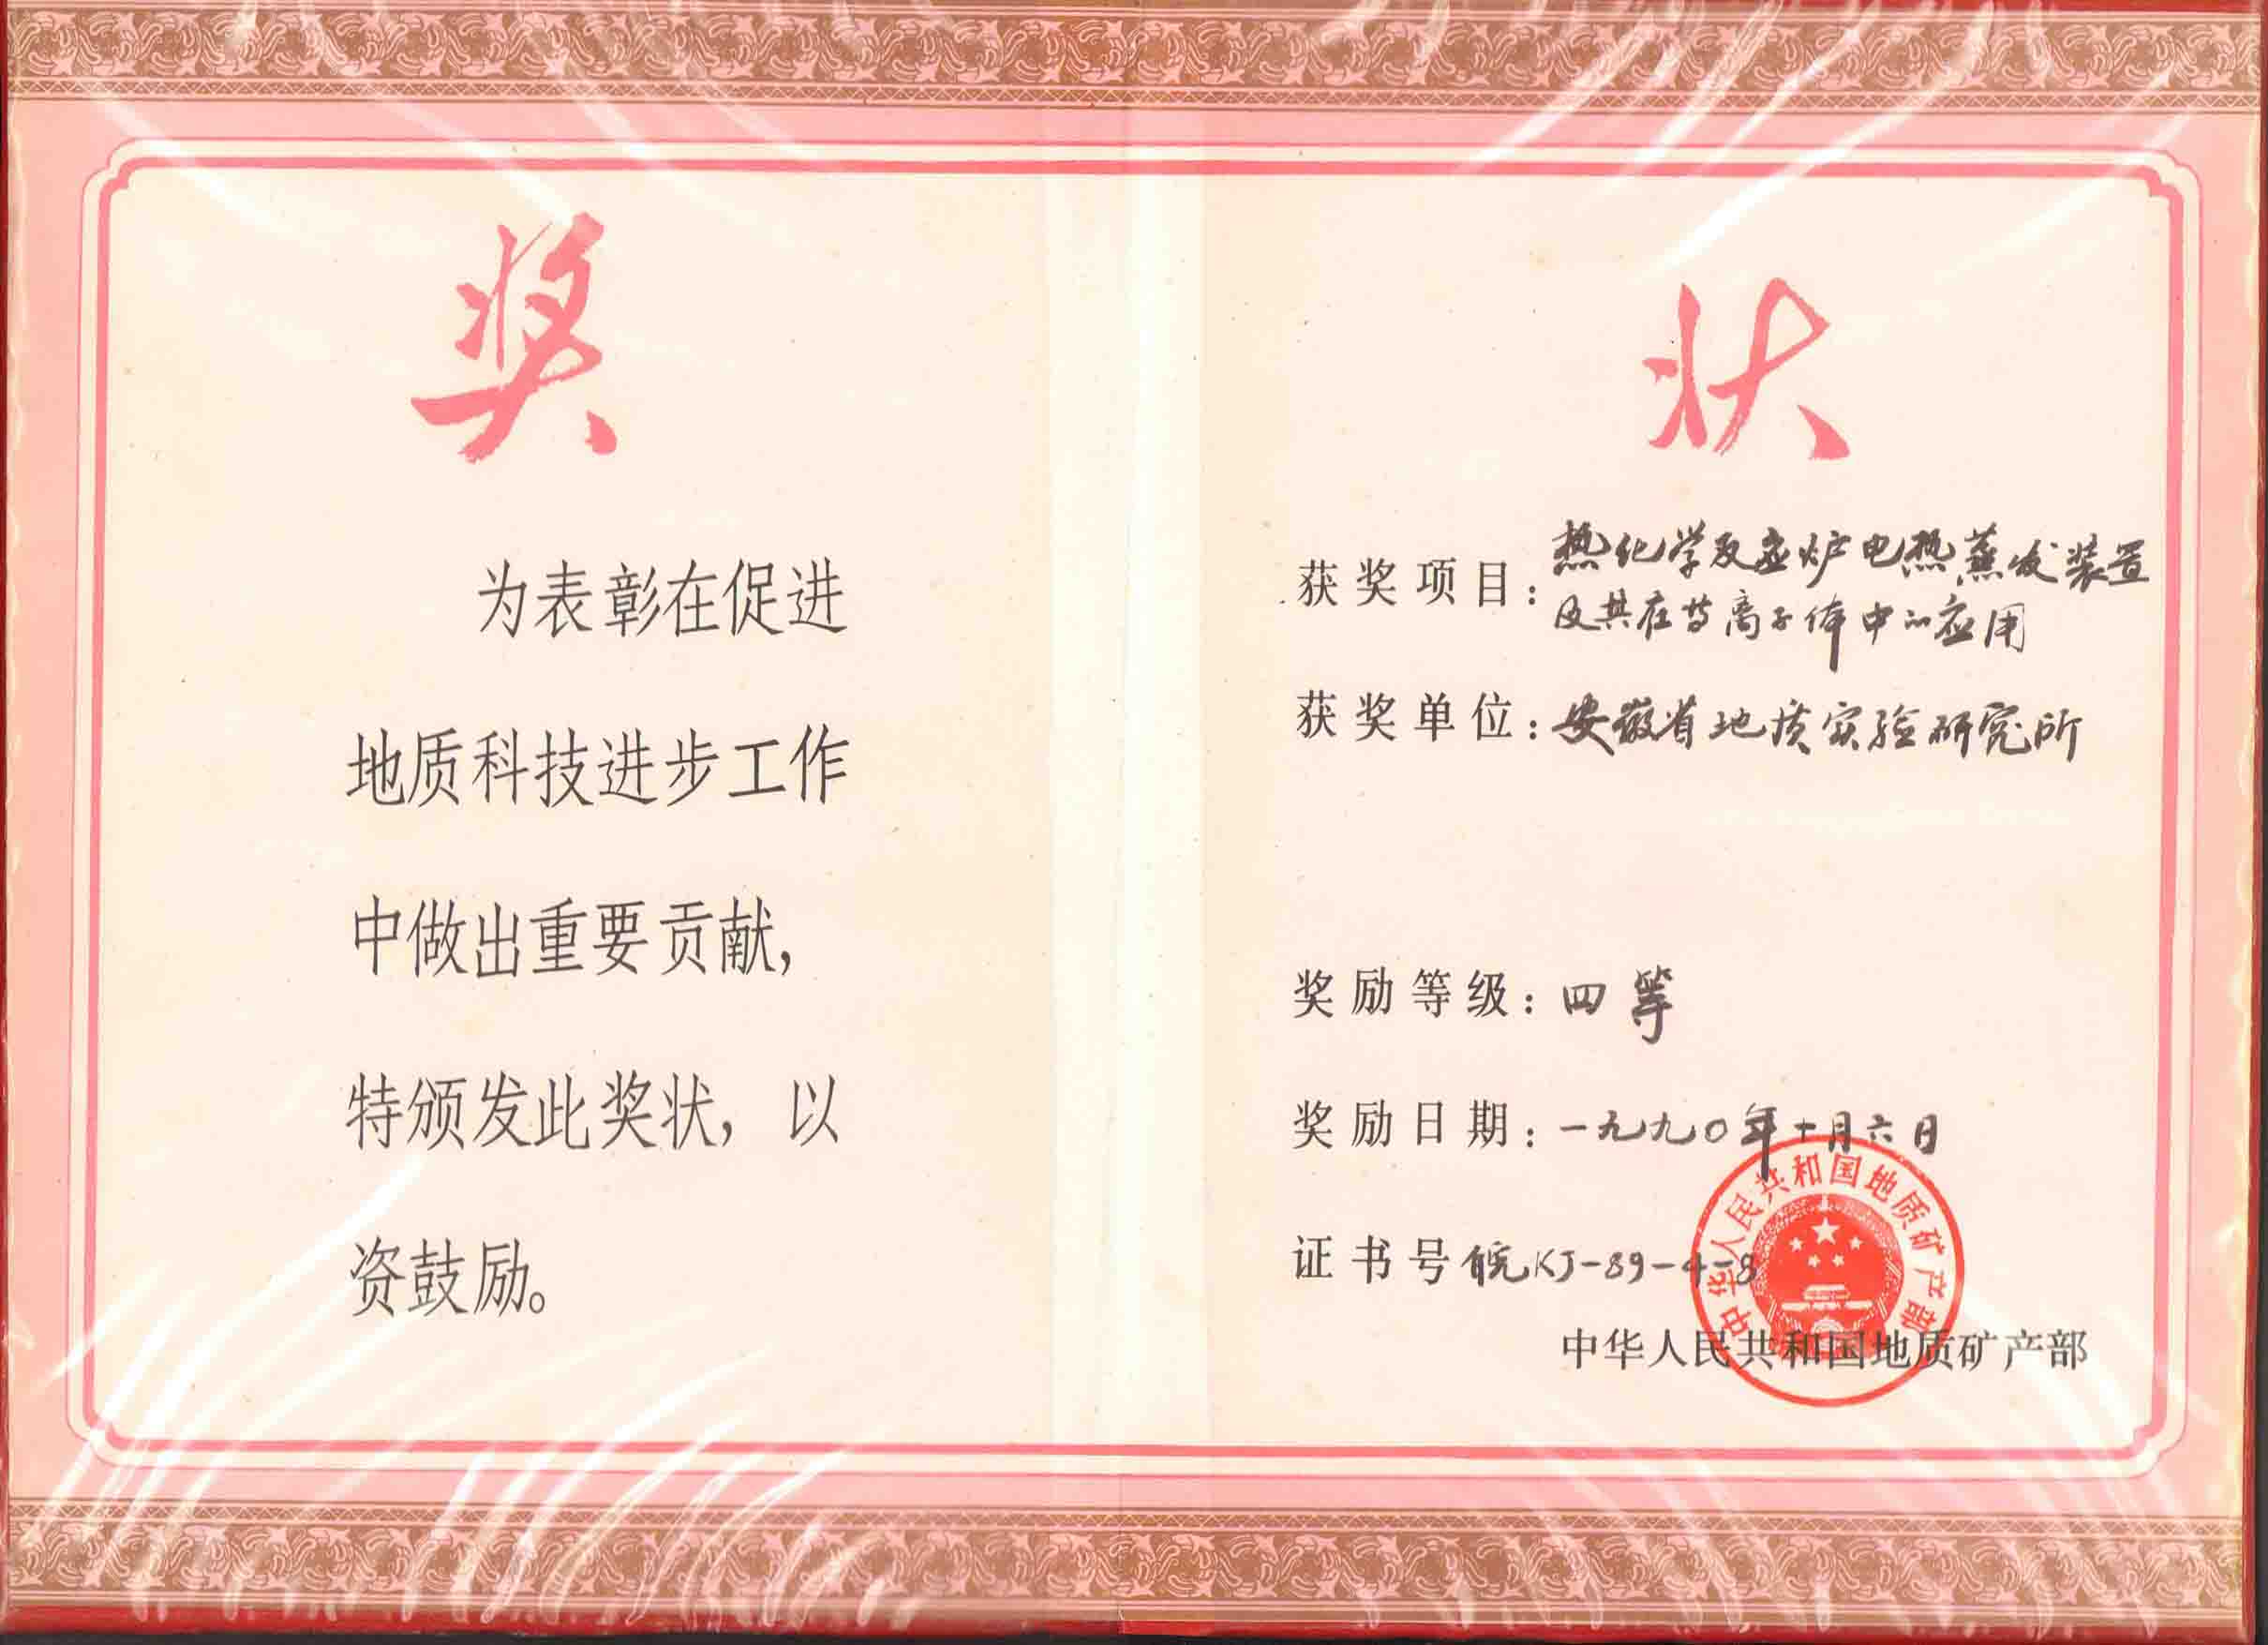 奖状
为表彰在促进
地质科技进步工作
中做出重要贡献，
特颁发此奖状，以
资鼓励。
获奖项目：热化学反应炉电热蒸发装置
及其在等离子体中的应用
获奖单位：安徽省地质实验研究所
奖励等级：四等
奖励日期：一九九〇年十月六日
证书号皖KJ-89-4-8
中华人民共和国地质矿产部
中华人民共和国地质矿产部